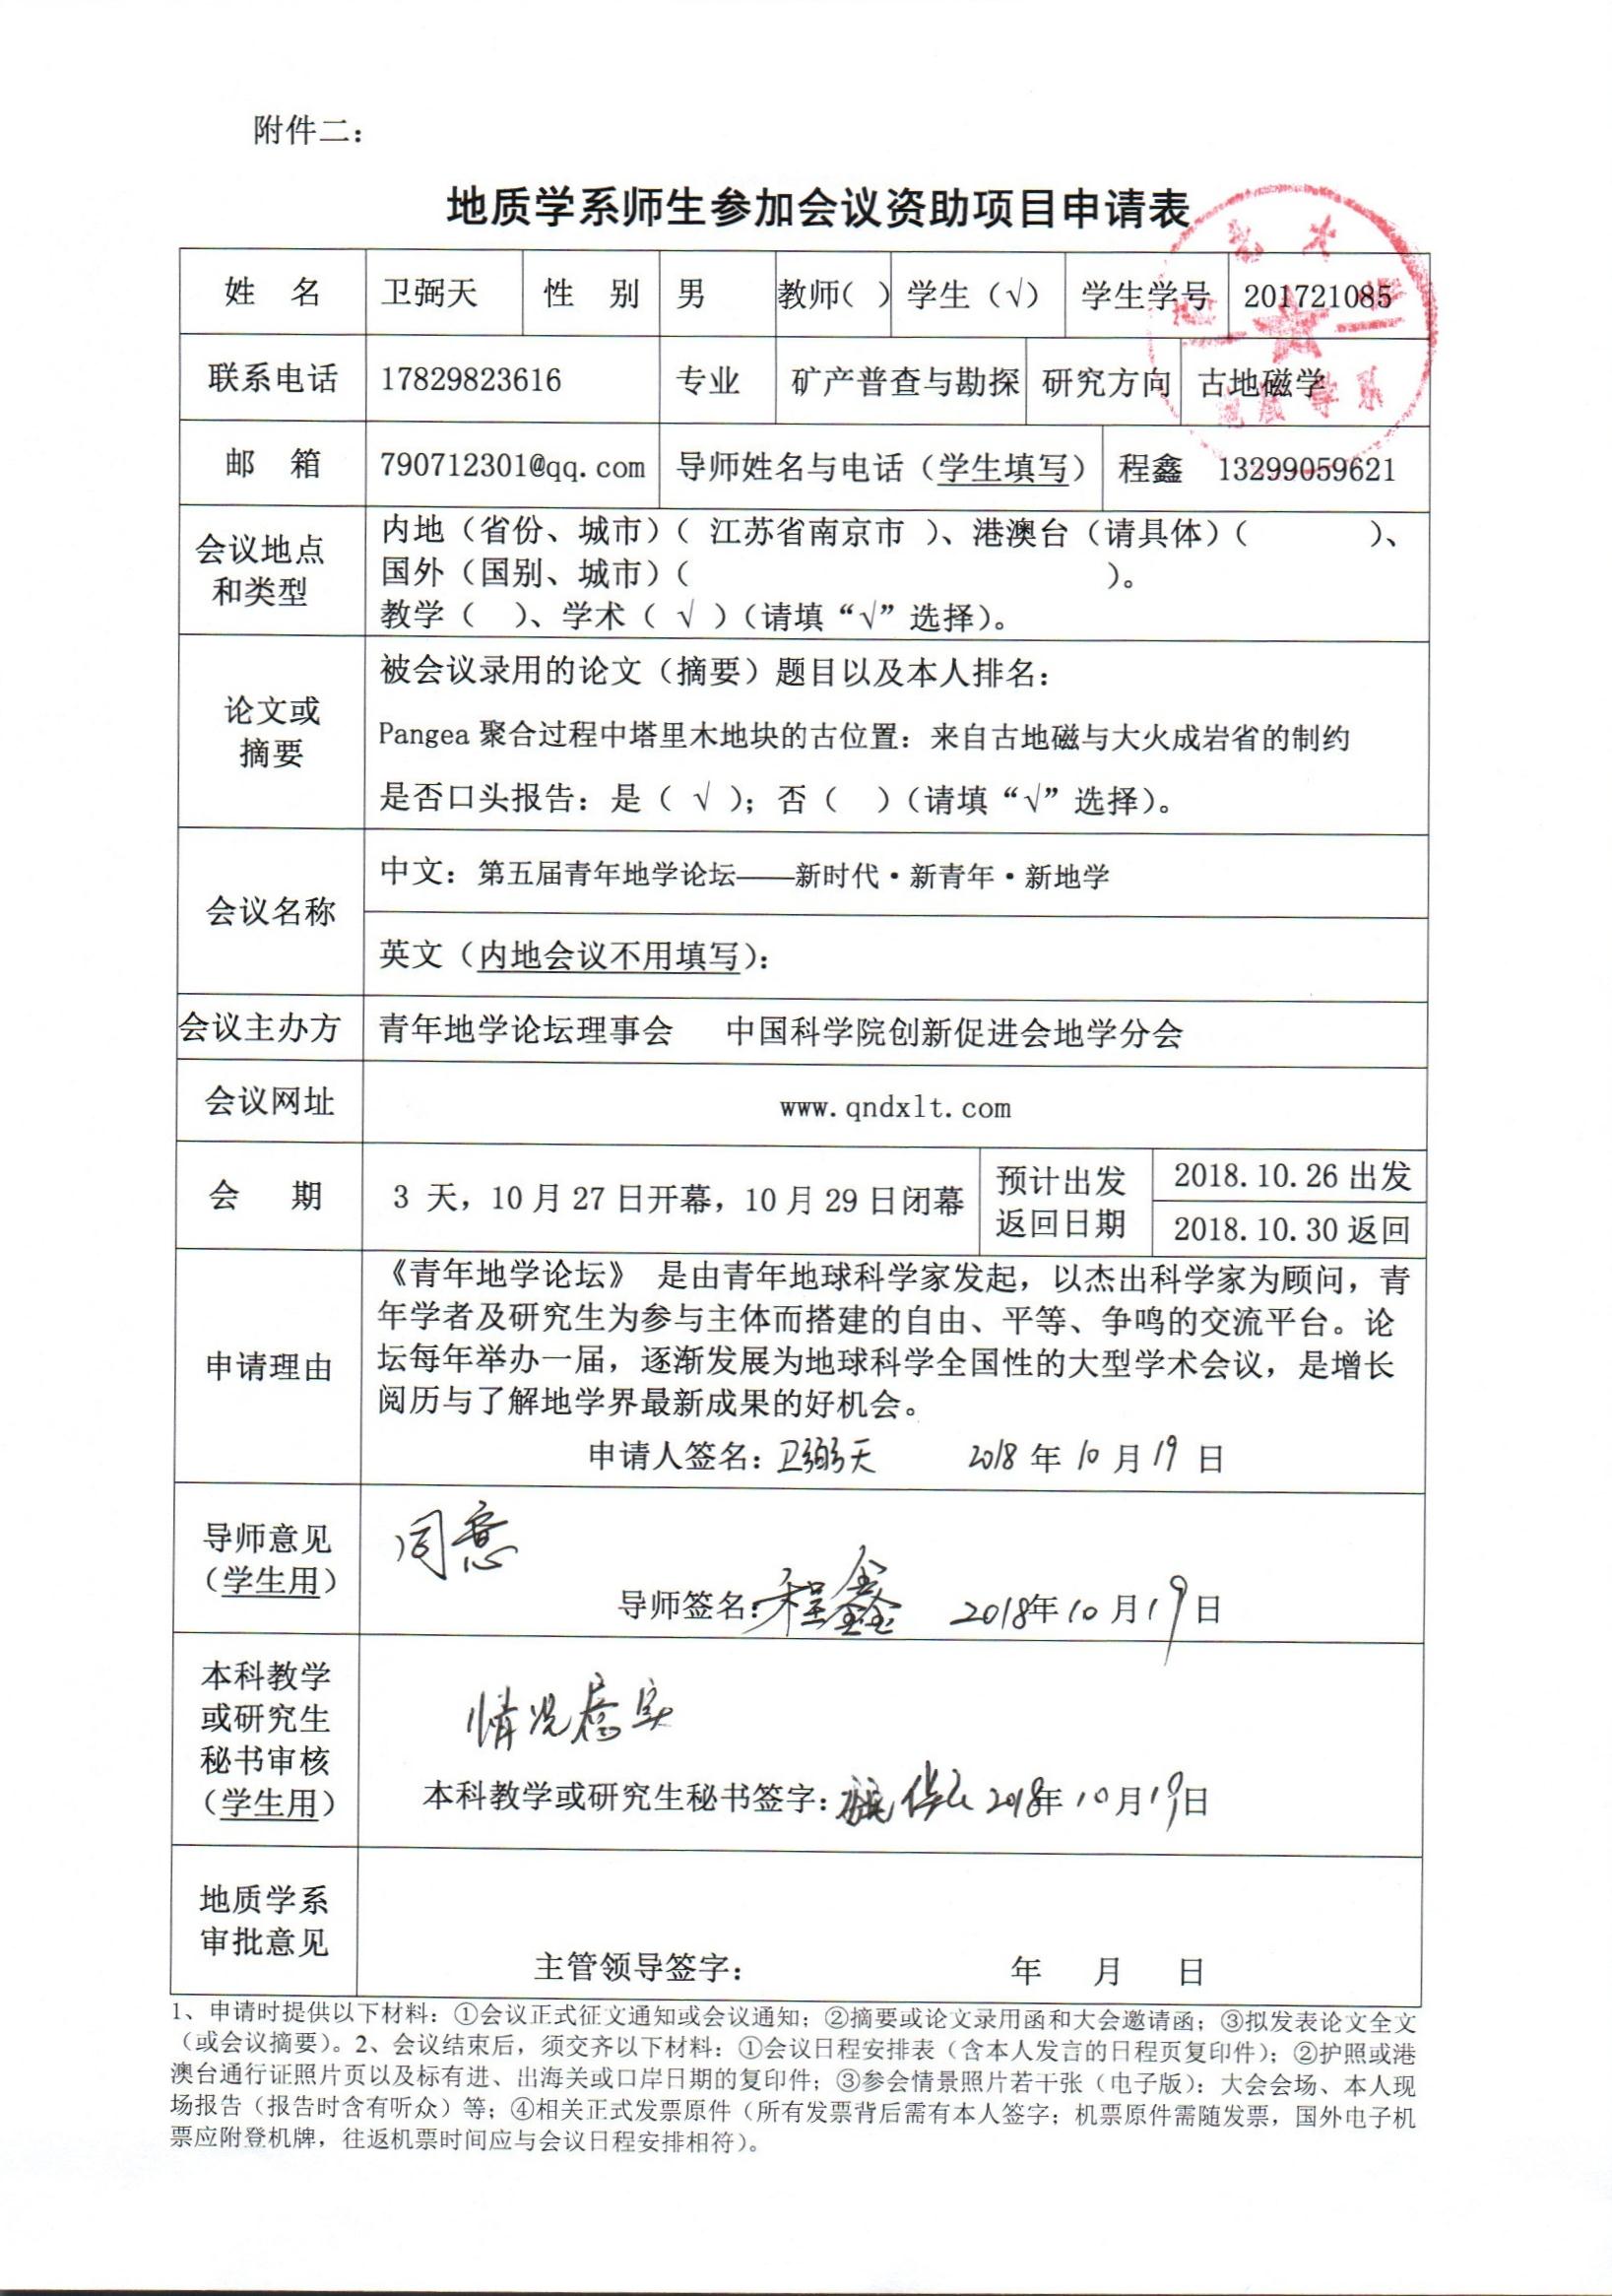 附件二：
地质学系师生参加会议资助项目申请表
姓 名 卫弼天 性 别 男 教师（ ） 学生（√） 学生学号 201721085
联系电话 17829823616 专业 矿产普查与勘探 研究方向 古地磁学
邮 箱 790712301@qq.com 导师姓名与电话（学生填写） 程鑫 13299059621
会议地点
和类型
内地（省份、城市）（ 江苏省南京市 ）、港澳台（请具体）（ ）、
国外（国别、城市）（ ）。
教学（ ）、学术（ √ ）（请填“√”选择）。
论文或
摘要
被会议录用的论文（摘要）题目以及本人排名：
Pangea 聚合过程中塔里木地块的古位置：来自古地磁与大火成岩省的制约
是否口头报告：是（ √ ）；否（ ）（请填“√”选择）。
会议名称
中文：第五届青年地学论坛——新时代·新青年·新地学
英文（内地会议不用填写）：
会议主办方 青年地学论坛理事会 中国科学院创新促进会地学分会
会议网址 www.qndxlt.com
会 期 3 天，10 月 27 日开幕，10 月 29 日闭幕
预计出发
返回日期
2018.10.26 出发
2018.10.30 返回
申请理由
《青年地学论坛》 是由青年地球科学家发起，以杰出科学家为顾问，青
年学者及研究生为参与主体而搭建的自由、平等、争鸣的交流平台。论
坛每年举办一届，逐渐发展为地球科学全国性的大型学术会议，是增长
阅历与了解地学界最新成果的好机会。
申请人签名：卫弼天 2018 年 10 月 19 日
导师意见
（学生用）
同意
导师签名：程鑫 2018年 10 月 19 日
本科教学
或研究生
秘书审核
（学生用）
情况属实
本科教学或研究生秘书签字： 2018年 10 月 19日
地质学系
审批意见
主管领导签字： 年 月 日
1、申请时提供以下材料：①会议正式征文通知或会议通知；②摘要或论文录用函和大会邀请函；③拟发表论文全文
（或会议摘要）。2、会议结束后，须交齐以下材料：①会议日程安排表（含本人发言的日程页复印件）；②护照或港
澳台通行证照片页以及标有进、出海关或口岸日期的复印件；③参会情景照片若干张（电子版）：大会会场、本人现
场报告（报告时含有听众）等；④相关正式发票原件（所有发票背后需有本人签字；机票原件需随发票，国外电子机
票应附登机牌，往返机票时间应与会议日程安排相符）。